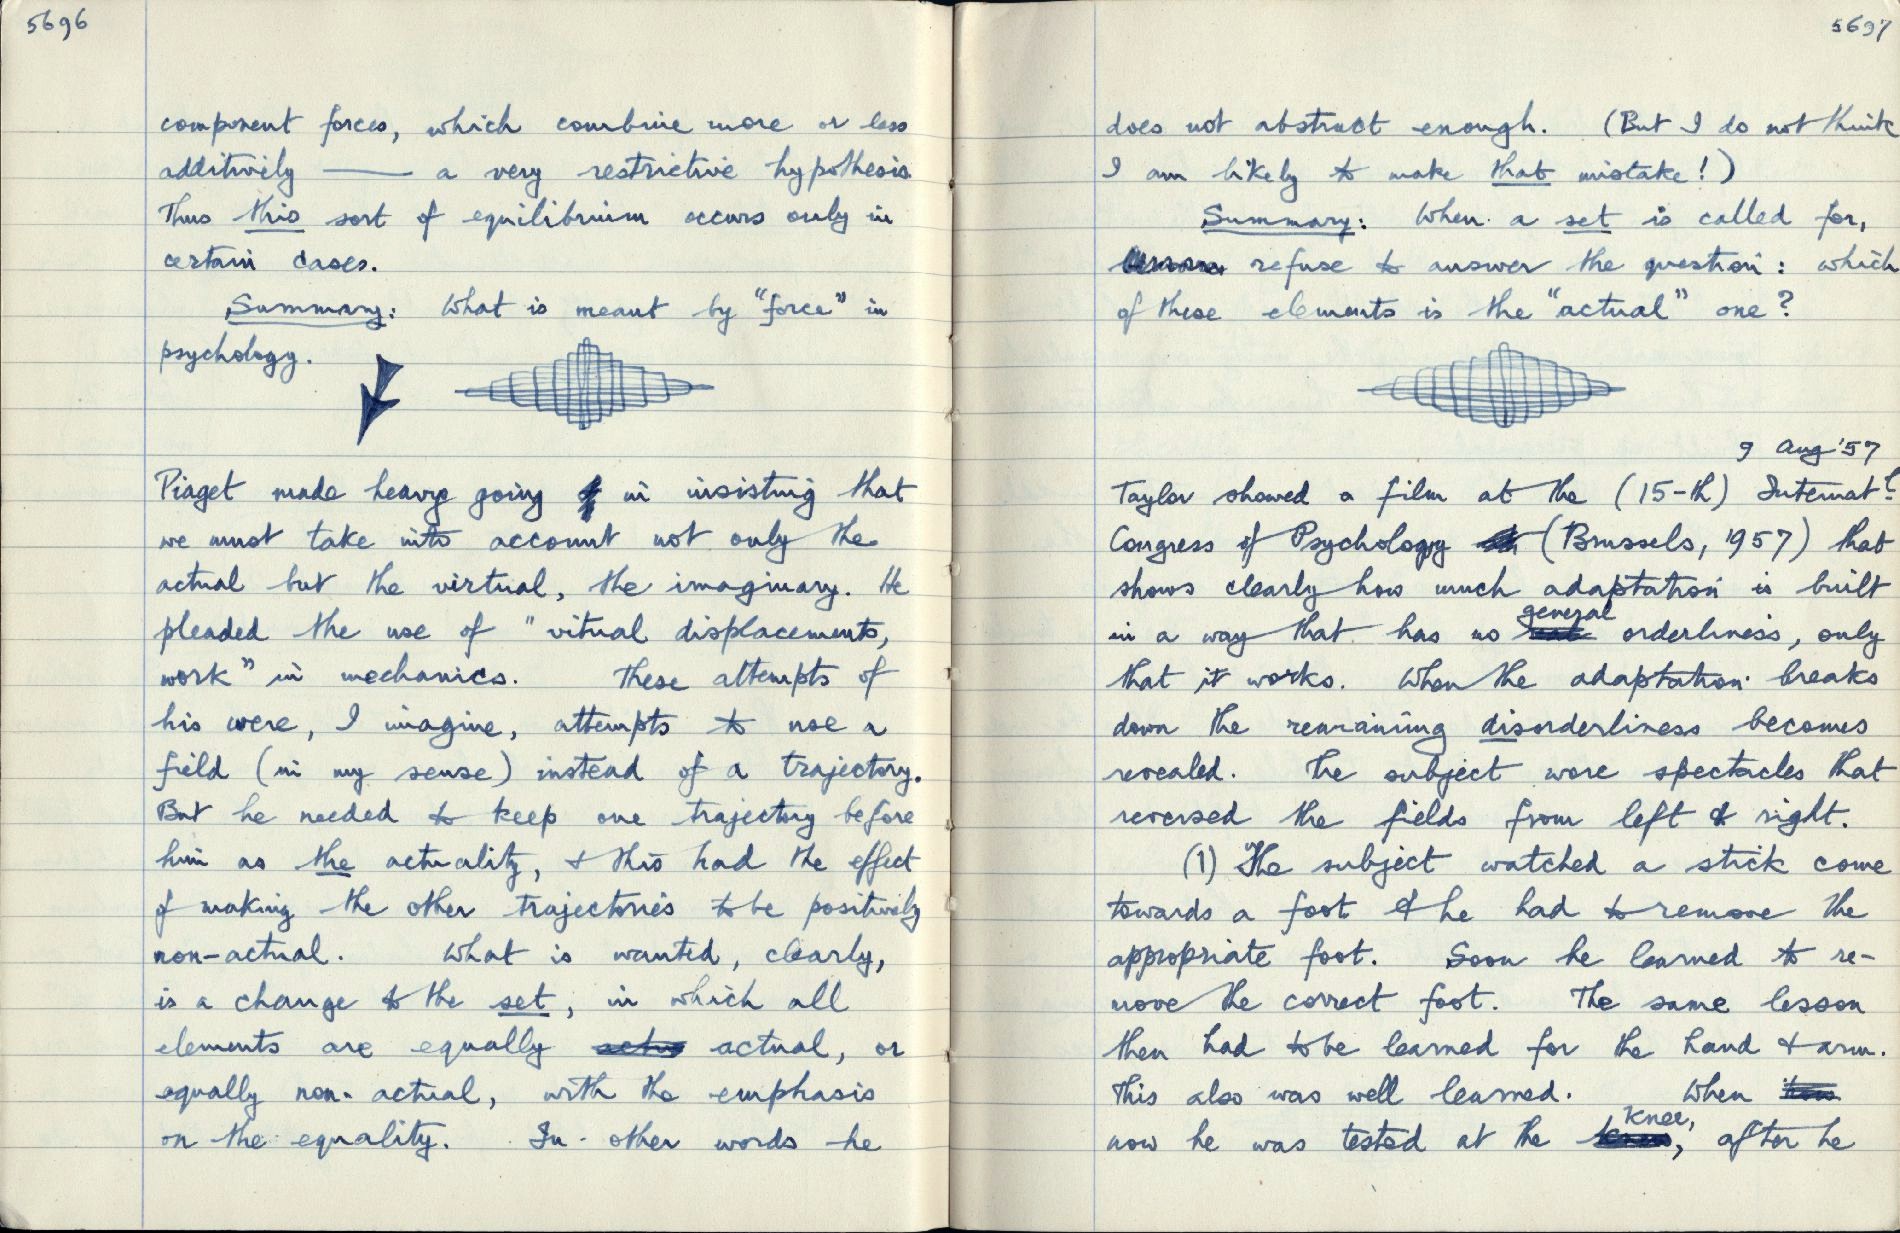 5696
component forces, which combine more or less
additively —— a very restrictive hypothesis.
Thus this sort of equilibrium occurs only in
certain cases.
Summary: What is meant by "force" in
psychology.
Piaget made heavy going in insisting that
we must take into account not only the
actual but the virtual, the imaginary. He
pleaded the use of "vitual displacements,
work" in mechanics. These attempts of
his were, I imagine, attempts to use a
field (in my sense) instead of a trajectory.
But he needed to keep one trajectory before
him as the actuality, & this had the effect
of making the other trajectories to be positively
non-actual. What is wanted, clearly,
is a change to the set, in which all
elements are equally actual, or
equally non-actual, with the emphasis
on the equality. In other words he
5697
does not abstract enough. (But I do not think
I am likely to make that mistake!)
Summary: When a set is called for,
refuse to answer the question: which
of these elements is the "actual" one?
9 Aug '57
Taylor showed a film at the (15-th) Internatl
Congress of Psychology (Brussels, 1957) that
shows clearly how much adaptation is built
in a way that has no general orderliness, only
that it works. When the adaptation breaks
down the remaining disorderliness becomes
revealed. The subject wore spectacles that
reversed the fields from left & right.
(1) The subject watched a stick come
towards a foot & he had to remove the
appropriate foot. Soon he learned to re-
move the correct foot. The same lesson
then had to be learned for the hand & arm.
This also was well learned. When
now he was tested at the knee, after he